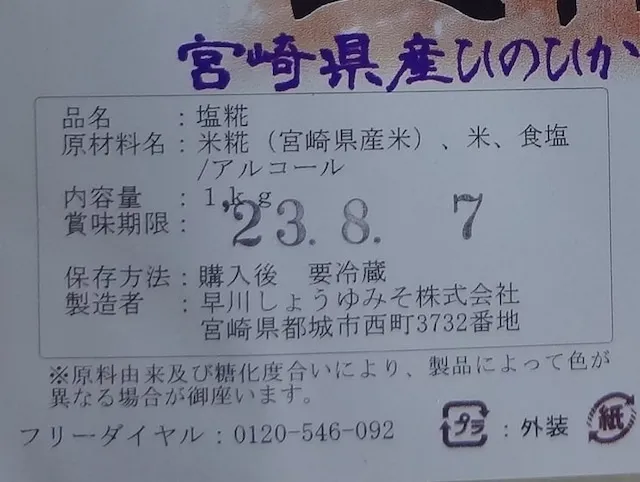 宮崎県産ひのひか
品名 : 塩糀
原材料名 : 米糀（宮崎県産米）、米、食塩
/アルコール
内容量 : 1kg
賞味期限 : '23.8. 7
保存方法 : 購入後 要冷蔵
製造者 : 早川しょうゆみそ株式会社
宮崎県都城市西町3732番地
※原料由来及び糖化度合いにより、製品によって色が
異なる場合が御座います。
フリーダイヤル : 0120-546-092
プラ : 外装
紙